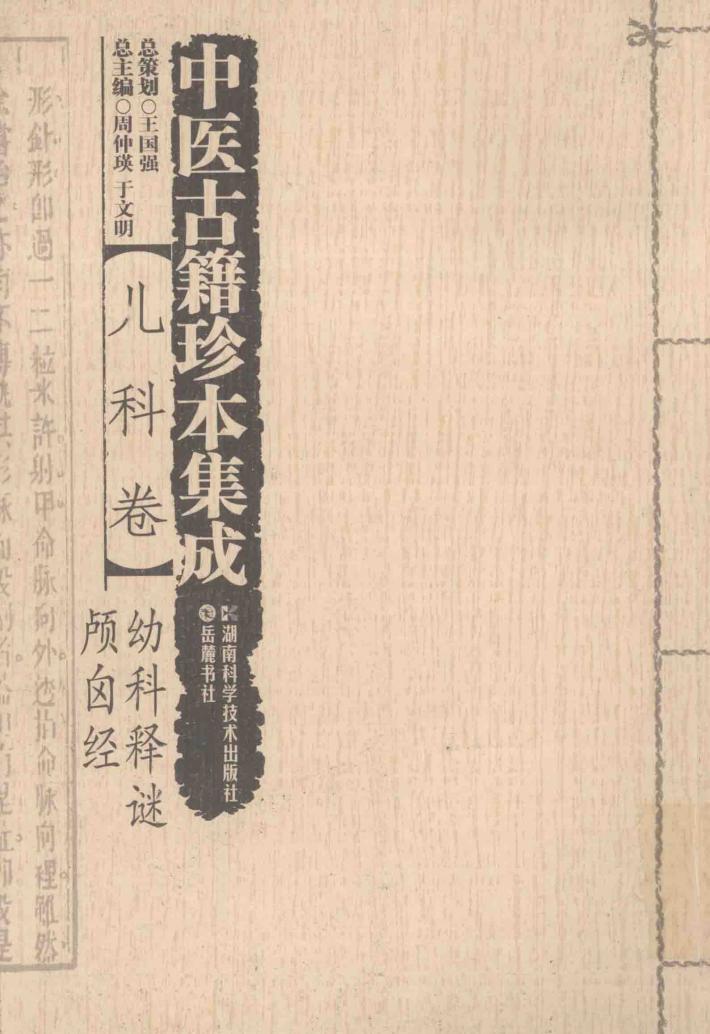 中医古籍珍本集成
总策划○王国强
总主编○周仲瑛 于文明
【儿科卷】
幼科释谜
颅囟经
湖南科学技术出版社
岳麓书社
形針形如過一二粒米許射甲命脉向外逆指命脉向裡雖然